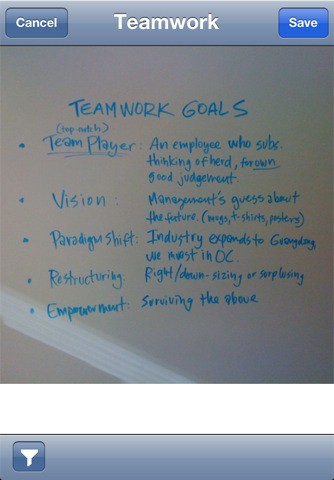 Cancel Teamwork Save
TEAMWORK GOALS
(top notch)
• Team Player: An employee who subs.
thinking of herd, for own
good judgement.
• Vision: Management's guess about
the future. (mugs, t-shirts, posters)
• Paradigm Shift: Industry expands to
we invest in OC.
• Restructuring: Right/down-sizing or surplusing
• Empowerment: Surviving the above